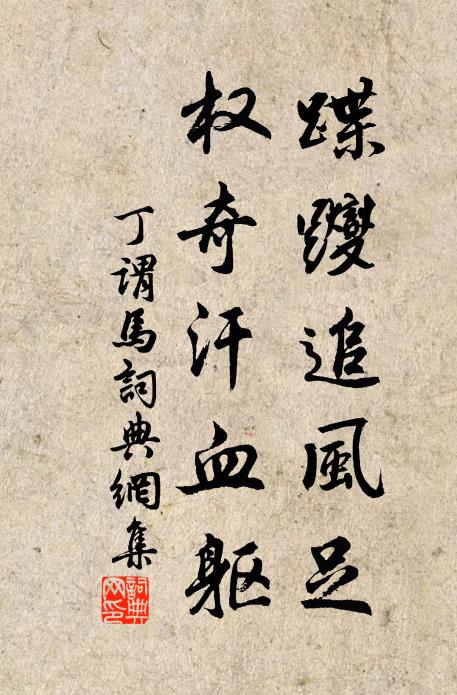 蹀躞追風足
权奇汗血躯
丁謂馬詞典網集
詞典